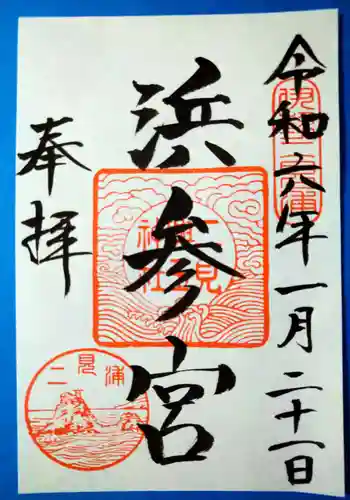 令和六年一月二十一日
浜参宮
奉拝
二見浦